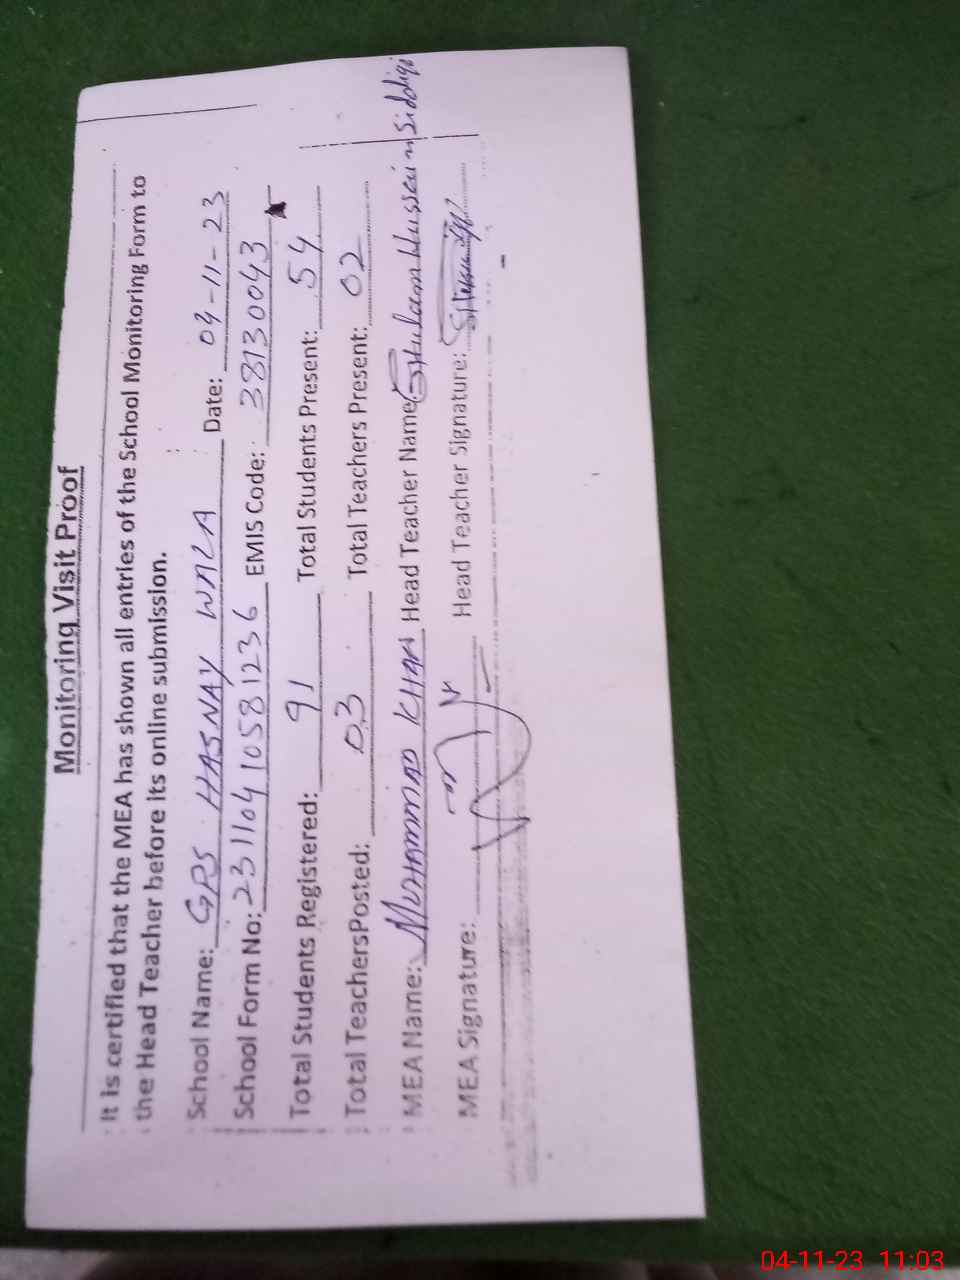 Monitoring Visit Proof
It is certified that the MEA has shown all entries of the School Monitoring Form to
the Head Teacher before its online submission.
School Name: GPS HASNAY WALA Date: 04-11-23
School Form No: 23110410581236 EMIS Code: 38130043
Total Students Registered: 91 Total Students Present: 54
Total TeachersPosted: 03 Total Teachers Present: 02
MEA Name: MUHAMMAD KHAN Head Teacher Name Ghulam Hussain Siddiqi
MEA Signature: Head Teacher Signature:
04-11-23 11:03